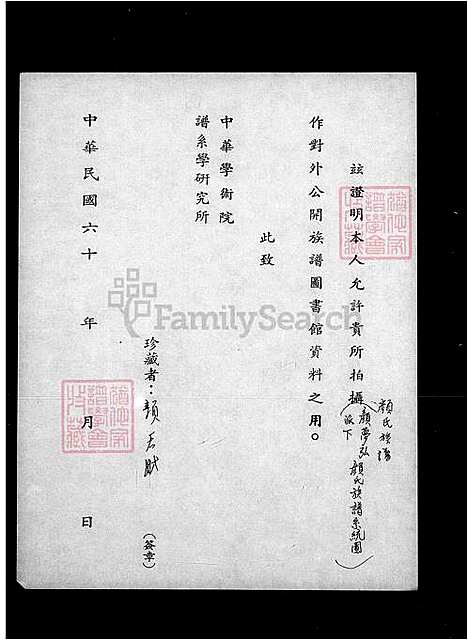 茲證明本人允許貴所拍攝
顏氏族譜
(顏夢弘顏氏族譜系統圖)
派下
作對外公開族譜圖書館資料之用。
此致
中華學術院
譜系學研究所
珍藏者：顏
（簽章）
中華民國六十　年　月　日
FamilySearch